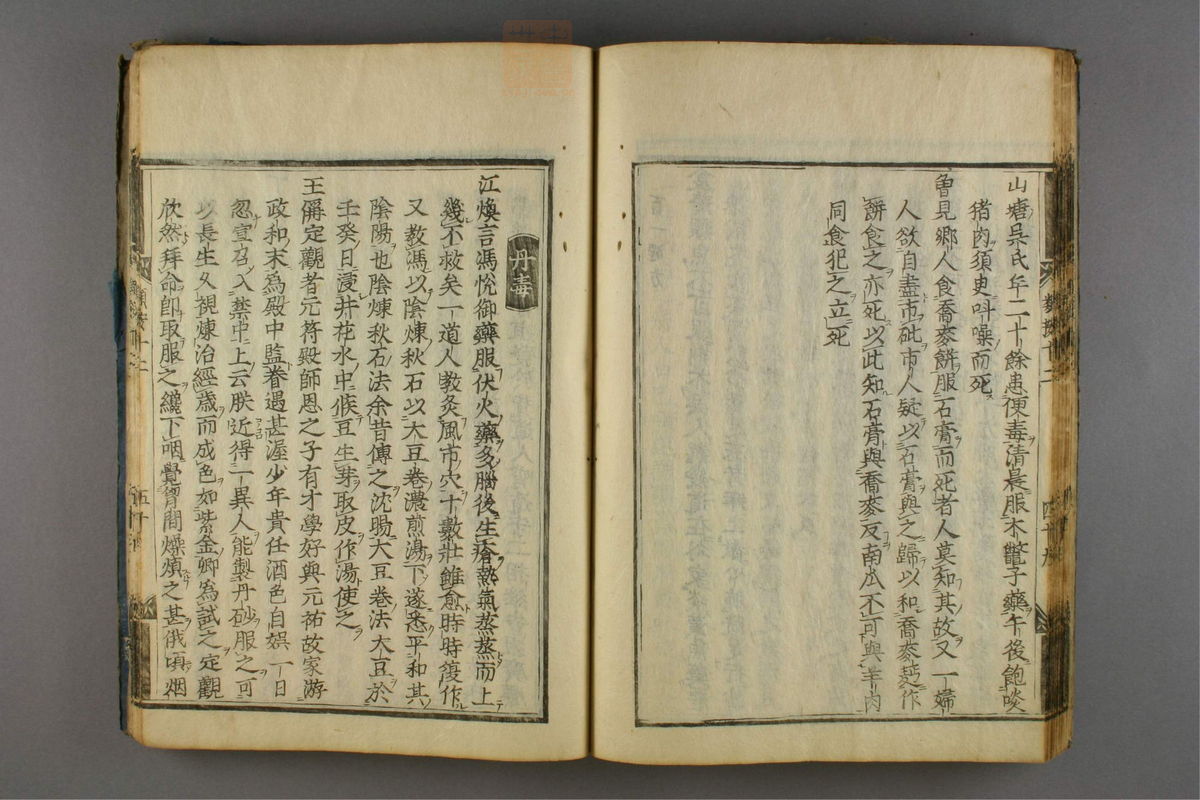 山塘吳氏年二十餘患便毒清晨服木鼈子藥午後飽啖
猪肉須臾叫噪而死
魯見鄉人食喬麥餅服石膏而死者人莫知其故又一婦
人欲自盡市砒市人疑以石膏與之歸以和喬麥麪作
餅食之亦死以此知石膏與喬麥反南瓜不可與羊肉
同食犯之立死
丹毒
江煥言馮悅御藥服伏火藥多腦後生瘡熱氣蒸蒸而上
幾不救矣一道人教灸風市穴十數壯雖愈時時復作
又教馮以陰煉秋石以大豆卷濃煎湯下遂悉平和其
陰陽也陰煉秋石法余昔傳之沈賜大豆卷法大豆於
壬癸日浸井花水中候豆生芽取皮作湯使之
王偁定觀者元符殿師恩之子有才學好與元祐故家游
政和末為殿中監眷遇甚渥少年貴任酒色自娛一日
忽宣召入禁中上云朕近得一異人能製丹砂服之可
以長生久視煉治經歲而成色如紫金卿為試之定觀
欣然拜命即取服之纔下咽覺胷間燥煩之甚俄頃烟